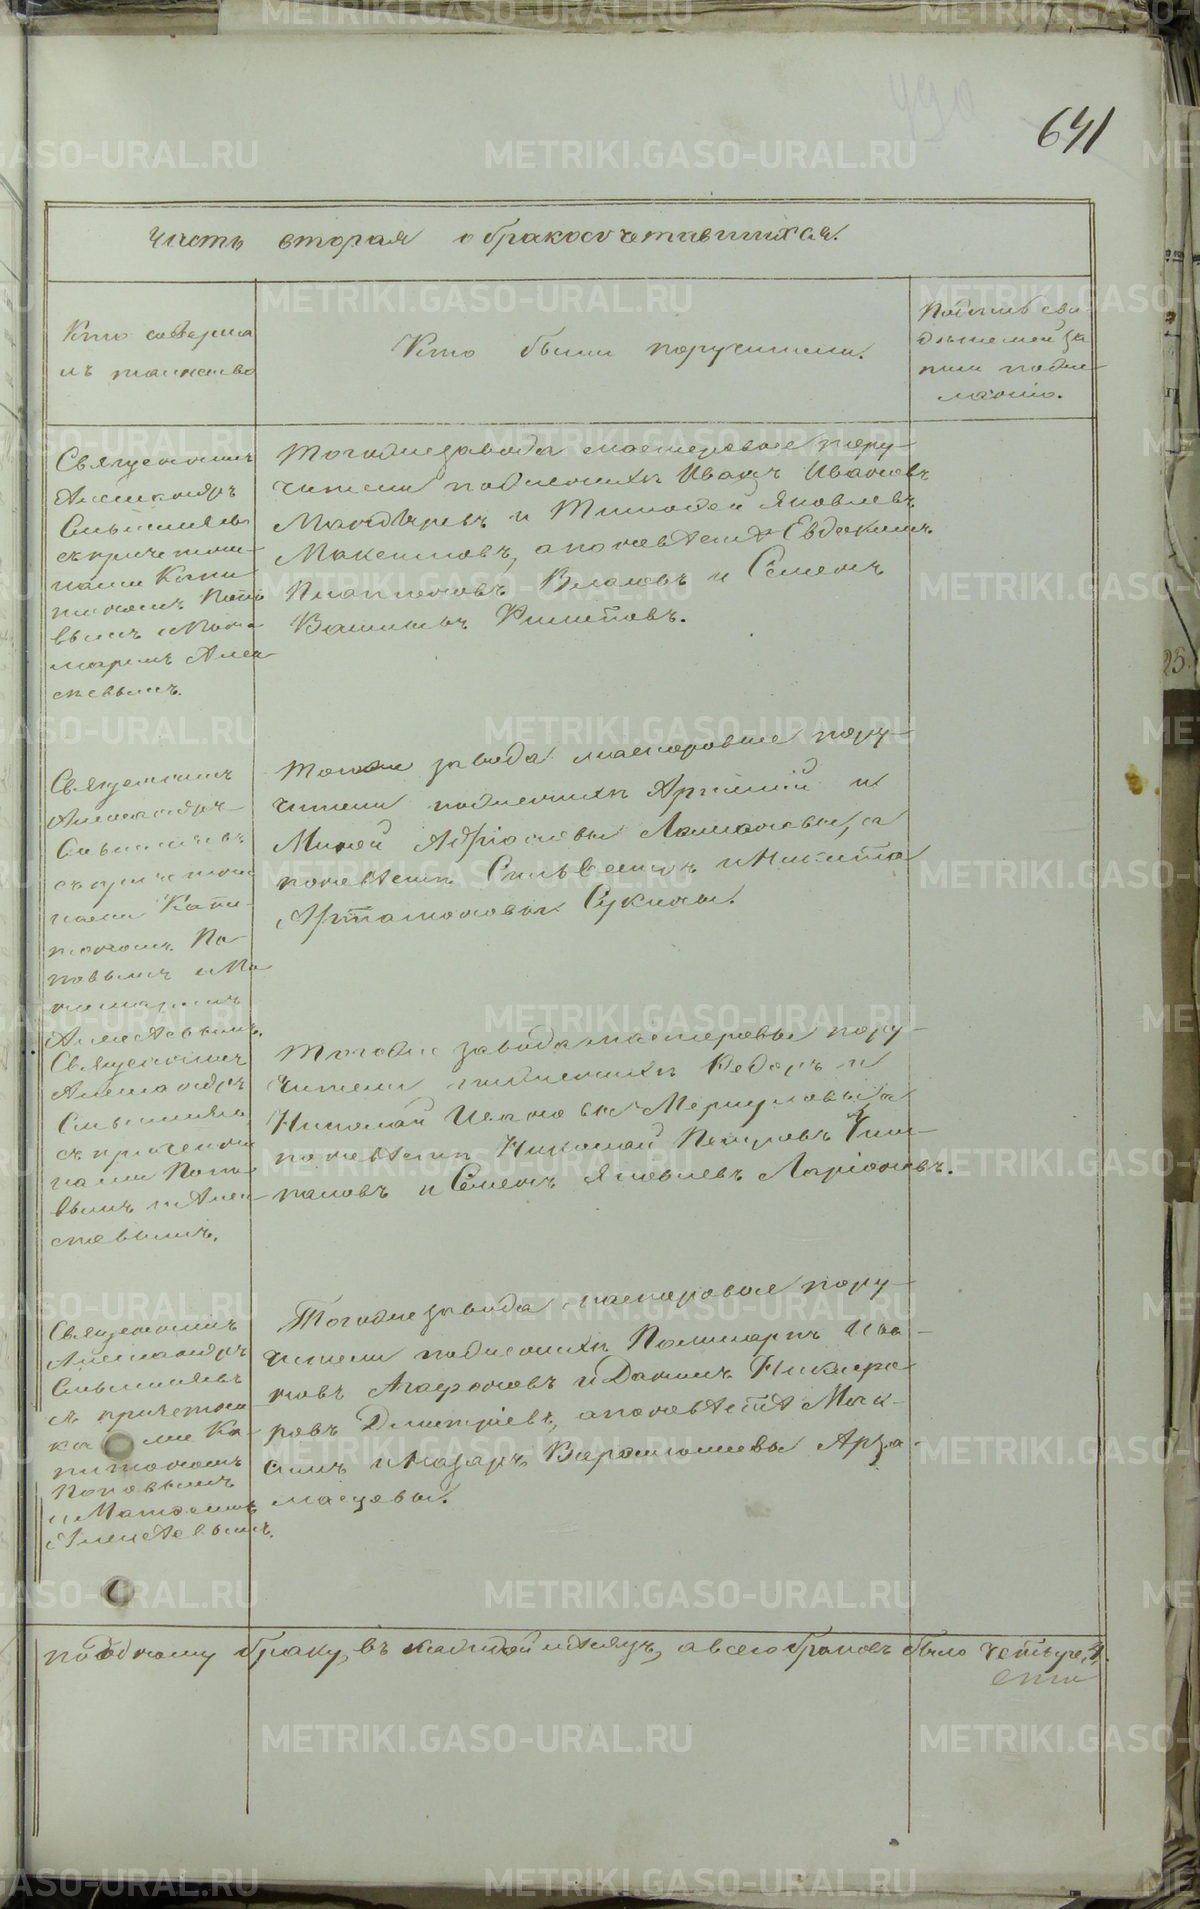 641
Часть вторая о бракосочетавшихся.
Кто соверша
лъ таинство
Кто были поручители.
Подпись сви
дѣтелей за
писи по же
ланію.
Священникъ
Александръ
съ причетни
ками Капи
тономъ Попо
вымъ и Поно
маремъ Алек
сѣевымъ.
Тогоже завода мастеровые пору
чители по женихѣ Иванъ Ивановъ
и Тимофей Яковлевъ
Максимовъ, а по невѣстѣ Евдокимъ
Власовъ и Семенъ
Филиповъ.
Священникъ
Александръ
съ причетни
ками Капи
тономъ По
повымъ и По
номаремъ
Алексѣевымъ.
Тогоже завода мастеровые пору
чители по женихѣ Артемій и
Миней Адріановы а
по невѣстѣ Сильвестръ и Никита
Артамоновы Сукины.
Священникъ
Александръ
съ причетни
ками Попо
вымъ и Алек
сѣевымъ.
Тогоже завода мастеровые пору
чители по женихѣ Федоръ и
Николай Ивановы Меркурьевы а
по невѣстѣ Николай Петровъ
и Семенъ Яковлевъ Ларіоновъ.
Священникъ
Александръ
съ причетни
ками Ка
питономъ
Поповымъ
и Матфеемъ
Алексѣевымъ.
Тогоже завода мастеровые пору
чители по женихѣ Полинарпъ Ива
новъ Агафоновъ и Данилъ Никифо
ровъ Дмитріевъ, а по невѣстѣ Мак
симъ и Назаръ Варфоломеевы Арза
масцевы.
по одному браку, въ каждой и всего браковъ было четыре, 4.
METRIKI.GASO-URAL.RU